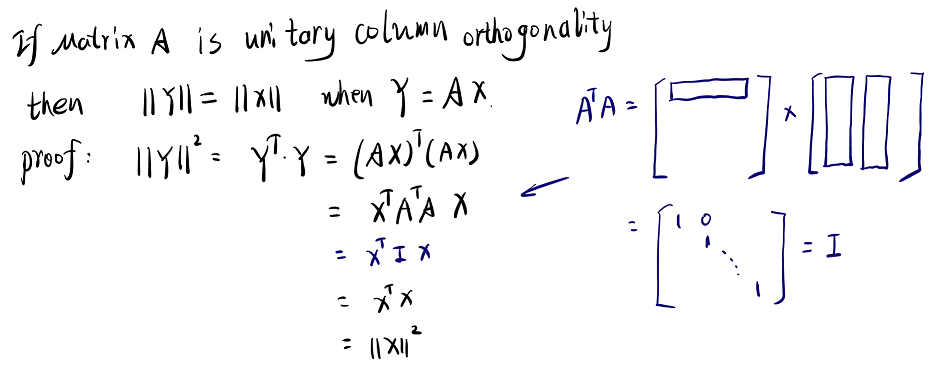 If Matrix A is unitary column orthogonality
then ||Y|| = ||X|| when Y = AX.
proof: ||Y||² = Yᵀ·Y = (AX)ᵀ(AX)
= XᵀAᵀA X
= Xᵀ I X
= XᵀX
= ||X||²
AᵀA = [ ] × [ ]
= [ 1 0
1 ⋱
1 ] = I